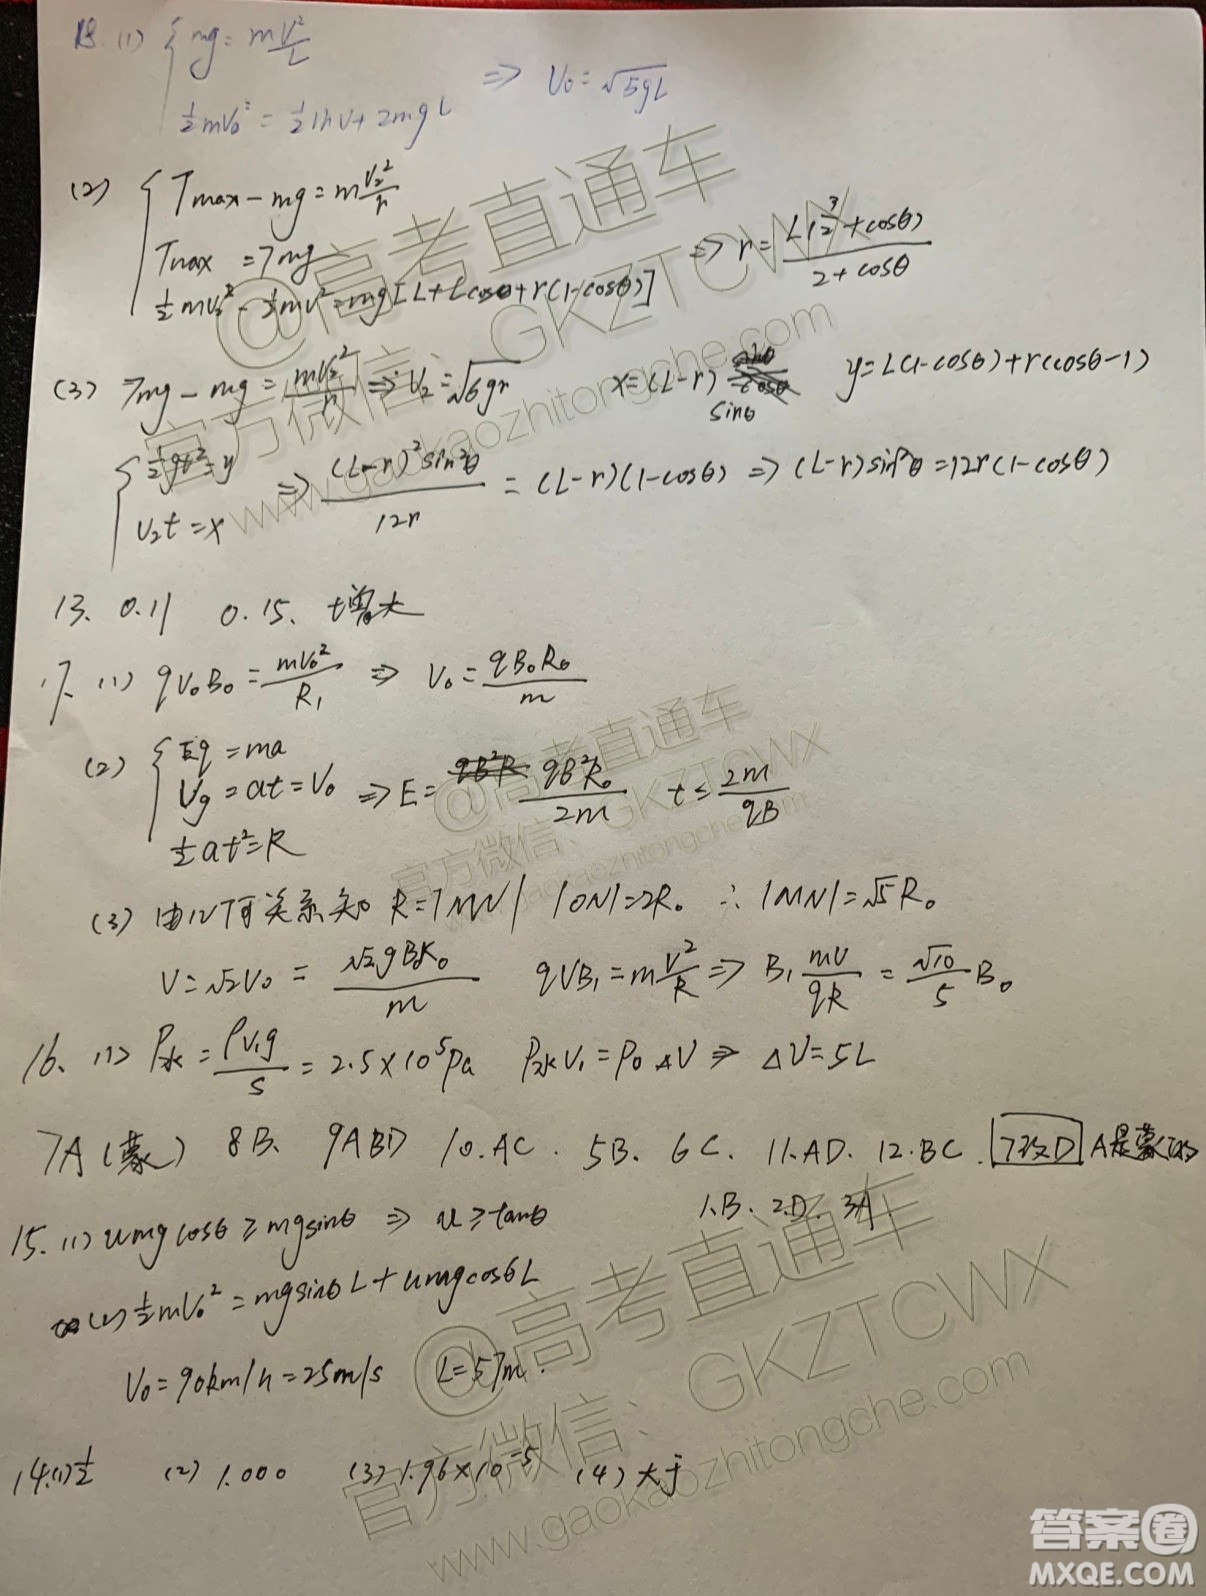 18. (1) { mg = mV²/L
½mV₀² = ½mV + 2mgL ⇒ V₀ = √5gL
(2) { Tmax - mg = m V₂²/r
Tmax = 7mg
½mV₂² - ½mV² = mg[L + Lcosθ + r(1-cosθ)] ⇒ r = L(3/2 + cosθ) / (2 + cosθ)
(3) 7mg - mg = mV₂²/r ⇒ V₂ = √6gr x = (L-r) sinθ y = L(1-cosθ) + r(cosθ-1)
{ ½gt² = y
V₂t = x ⇒ (L-r)²sin²θ / 12r = (L-r)(1-cosθ) ⇒ (L-r)sin²θ = 12r(1-cosθ)
13. 0.11 0.15. 增大
17. (1) qV₀B₀ = mV₀²/R₁ ⇒ V₀ = qB₀R₀/m
(2) { Eq = ma
Vy = at = V₀ ⇒ E = qB²R₀/2m t = 2m/qB
½at² = R
(3) 由几何关系知 R = |MN| |ON| = 2R₀ ∴ |MN| = √5R₀
V = √2V₀ = √2qBR₀/m qVB₁ = mV²/R ⇒ B₁ mV/qR = √10/5 B₀
16. (1) P水 = ρV₁g/S = 2.5×10⁵Pa P水V₁ = P₀ΔV ⇒ ΔV = 5L
7A(蒙) 8B. 9ABD 10.AC. 5B. 6C. 11.AD. 12.BC. 7改D A是蒙的
1.B. 2.D. 3A
15. (1) umgcosθ ≥ mgsinθ ⇒ u ≥ tanθ
(2) ½mV₀² = mgsinθL + umgcosθL
V₀ = 90km/h = 25m/s L = 57m.
14.(1) ½ (2) 1.000 (3) 1.96×10⁻⁵ (4) 大于
@高考直通车
官方微信：GKZTCWX
www.gaokaozhitongche.com
@高考直通车
官方微信：GKZTCWX
www.gaokaozhitongche.com
@高考直通车
官方微信：GKZTCWX
www.gaokaozhitongche.com
答案圈
MXQE.COM